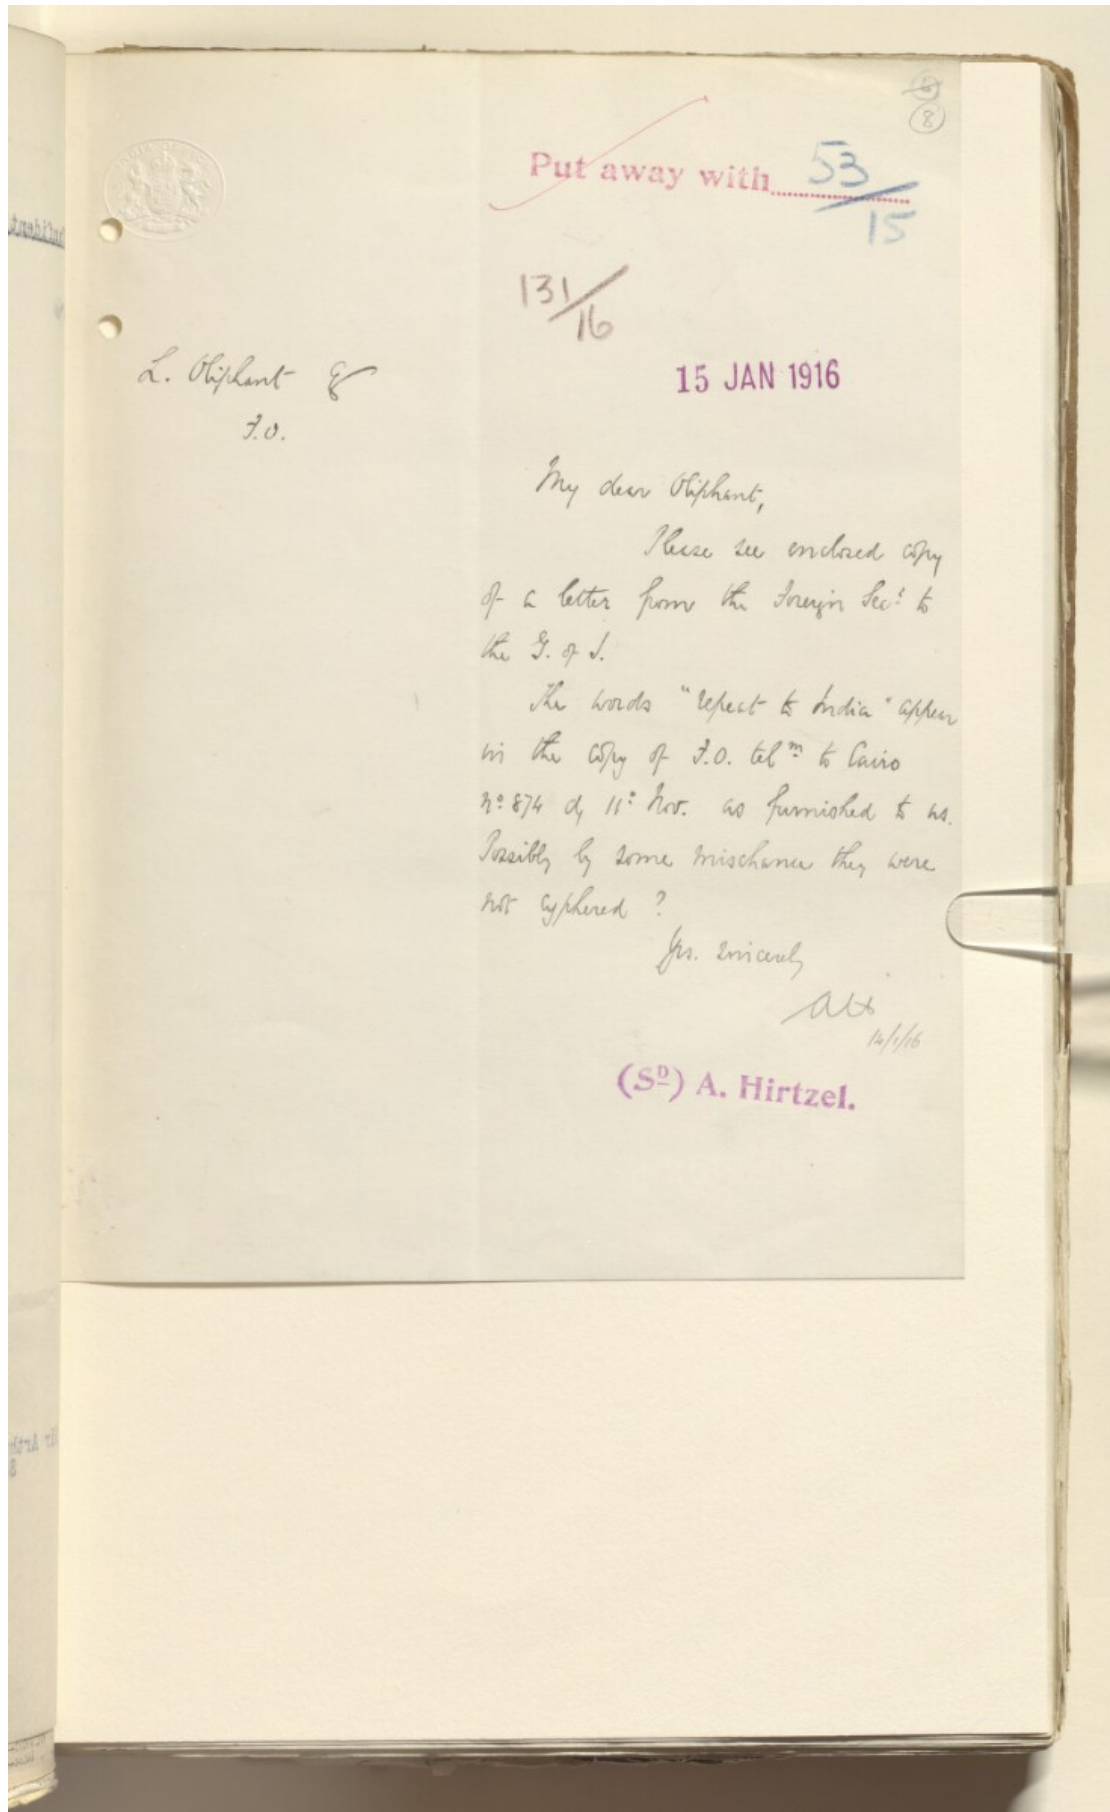 8
Put away with 53/15
131/16
15 JAN 1916
L. Oliphant Esq
F.O.
My dear Oliphant,
Please see enclosed copy
of a letter from the Foreign Secy to
the G. of I.
The words "repeat to India" appear
in the copy of F.O. telm to Cairo
No 874 of 11th Nov. as furnished to us.
Possibly by some mischance they were
not cyphered?
Yrs. sincerely
14/1/16
(SD) A. Hirtzel.